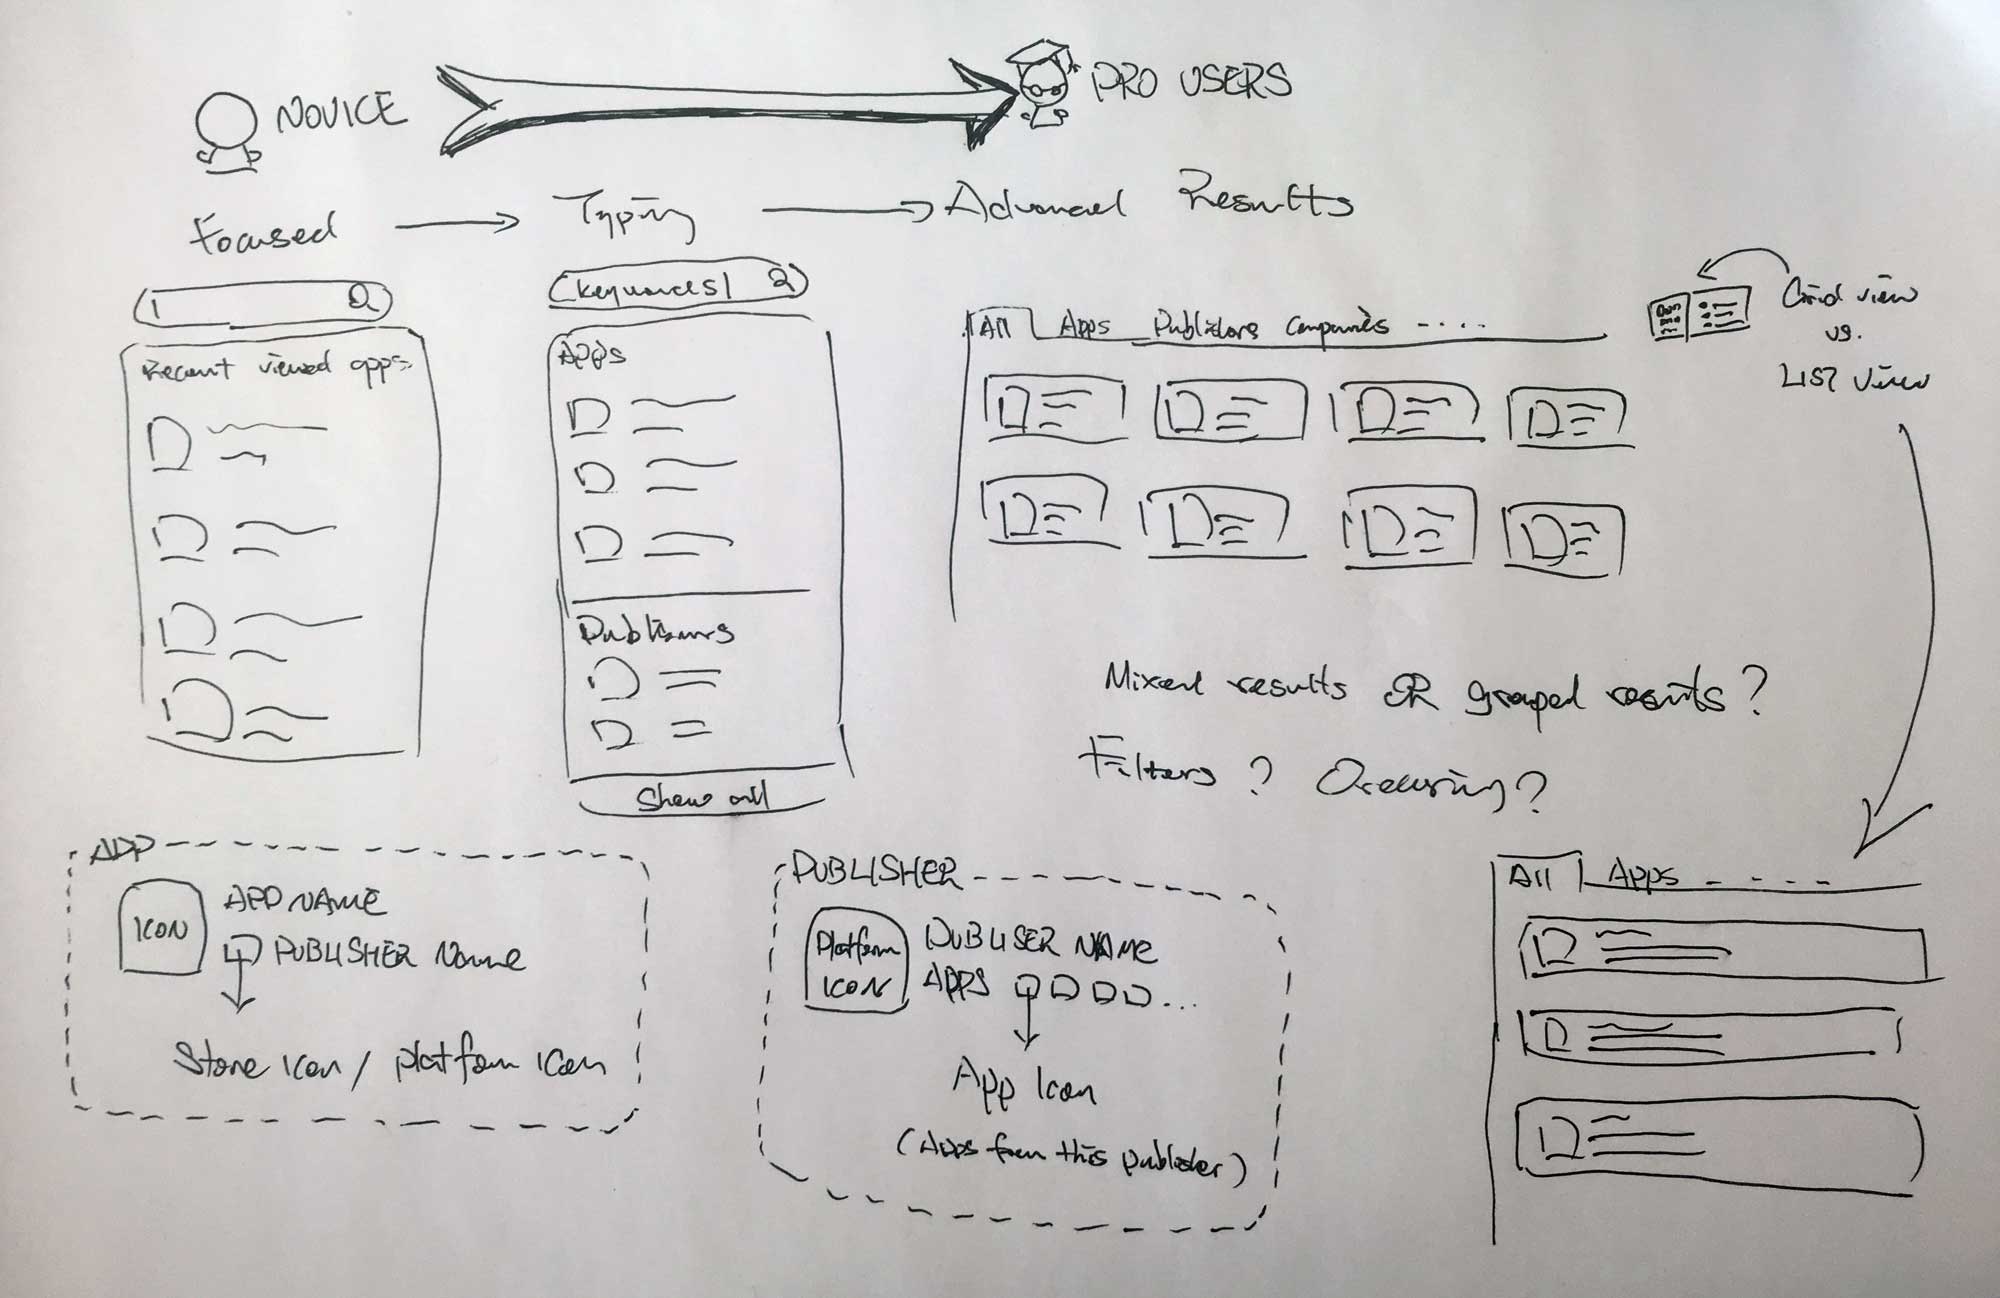 NOVICE
PRO USERS
Focused
Typing
Advanced Results
(keywords|
Recent viewed apps
Apps
Publishers
Show all
All Apps Publishers Companies ....
Grid view
vs.
LIST view
Mixed results OR grouped results?
Filters? Ordering?
APP
ICON
APP NAME
PUBLISHER Name
Store icon / platform icon
PUBLISHER
Platform
ICON
PUBLISER NAME
APPS ...
App Icon
(Apps from this publisher)
All Apps